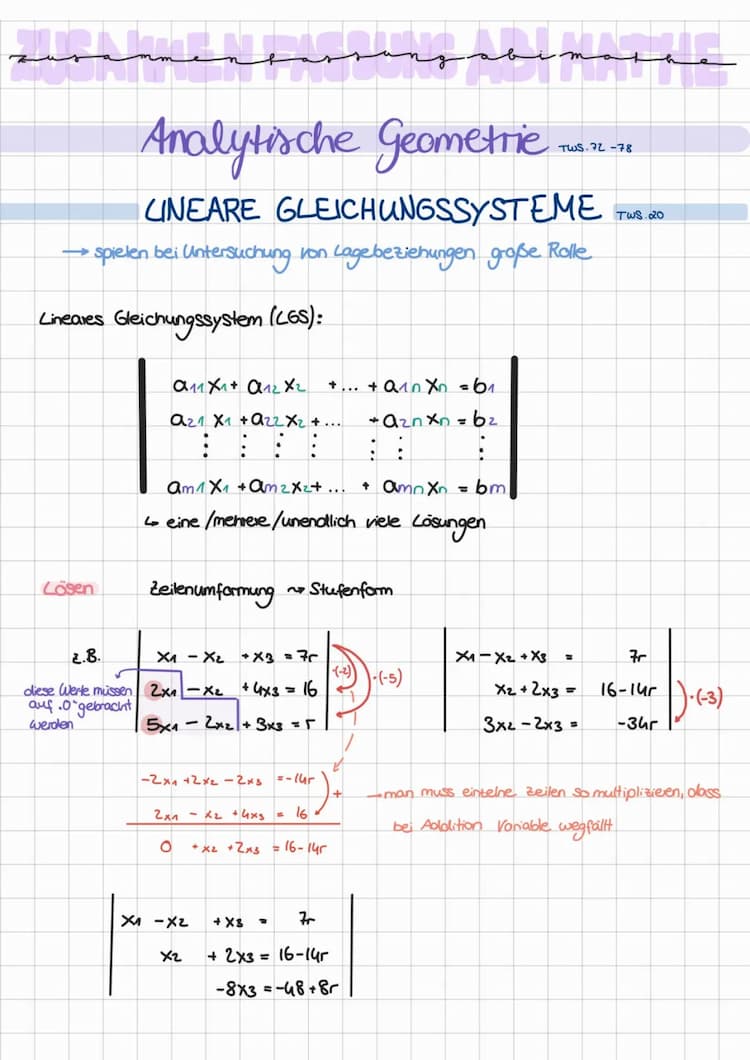 ZUSAMMENFASSUNG ABI MATHE
zusammenfassung abi mathe
Analytische Geometrie TWS. 72 - 78
LINEARE GLEICHUNGSSYSTEME TWS. 20
→ spielen bei Untersuchung von Lagebeziehungen große Rolle
Lineares Gleichungssystem (LGS):
a₁₁x₁ + a₁₂x₂ + ... + a₁ₙxₙ = b₁
a₂₁x₁ + a₂₂x₂ + ... + a₂ₙxₙ = b₂
⋮ ⋮ ⋮ ⋮ ⋮ ⋮ ⋮
aₘ₁x₁ + aₘ₂x₂ + ... + aₘₙxₙ = bₘ
↳ eine / mehrere / unendlich viele Lösungen
Lösen Zeilenumformung ⤳ Stufenform
z.B.
x₁ - x₂ + x₃ = 7r
2x₁ - x₂ + 4x₃ = 16
5x₁ - 2x₂ + 3x₃ = r
·(-2)
·(-5)
diese Werte müssen
auf „0" gebracht
werden
x₁ - x₂ + x₃ = 7r
x₂ + 2x₃ = 16-14r
3x₂ - 2x₃ = -34r
·(-3)
-2x₁ + 2x₂ - 2x₃ = -14r
2x₁ - x₂ + 4x₃ = 16
+
0 + x₂ + 2x₃ = 16-14r
→ man muss einzelne Zeilen so multiplizieren, dass
bei Addition Variable wegfällt
x₁ - x₂ + x₃ = 7r
x₂ + 2x₃ = 16-14r
-8x₃ = -48+8r